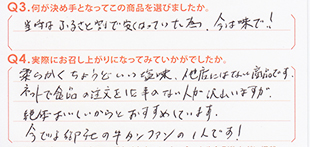 Q3.何が決め手となってこの商品を選びましたか。
当時はふるさと割で安くなっていた為、今は味で!!
Q4.実際にお召し上がりになってみていかがでしたか。
柔らかくちょうどいい塩味、他店にはない商品です。
ネットで食品の注文を苦手のない人が沢山いますが、
絶対おいしいからとおすすめしています。
今では御社の牛タンファンの1人です!